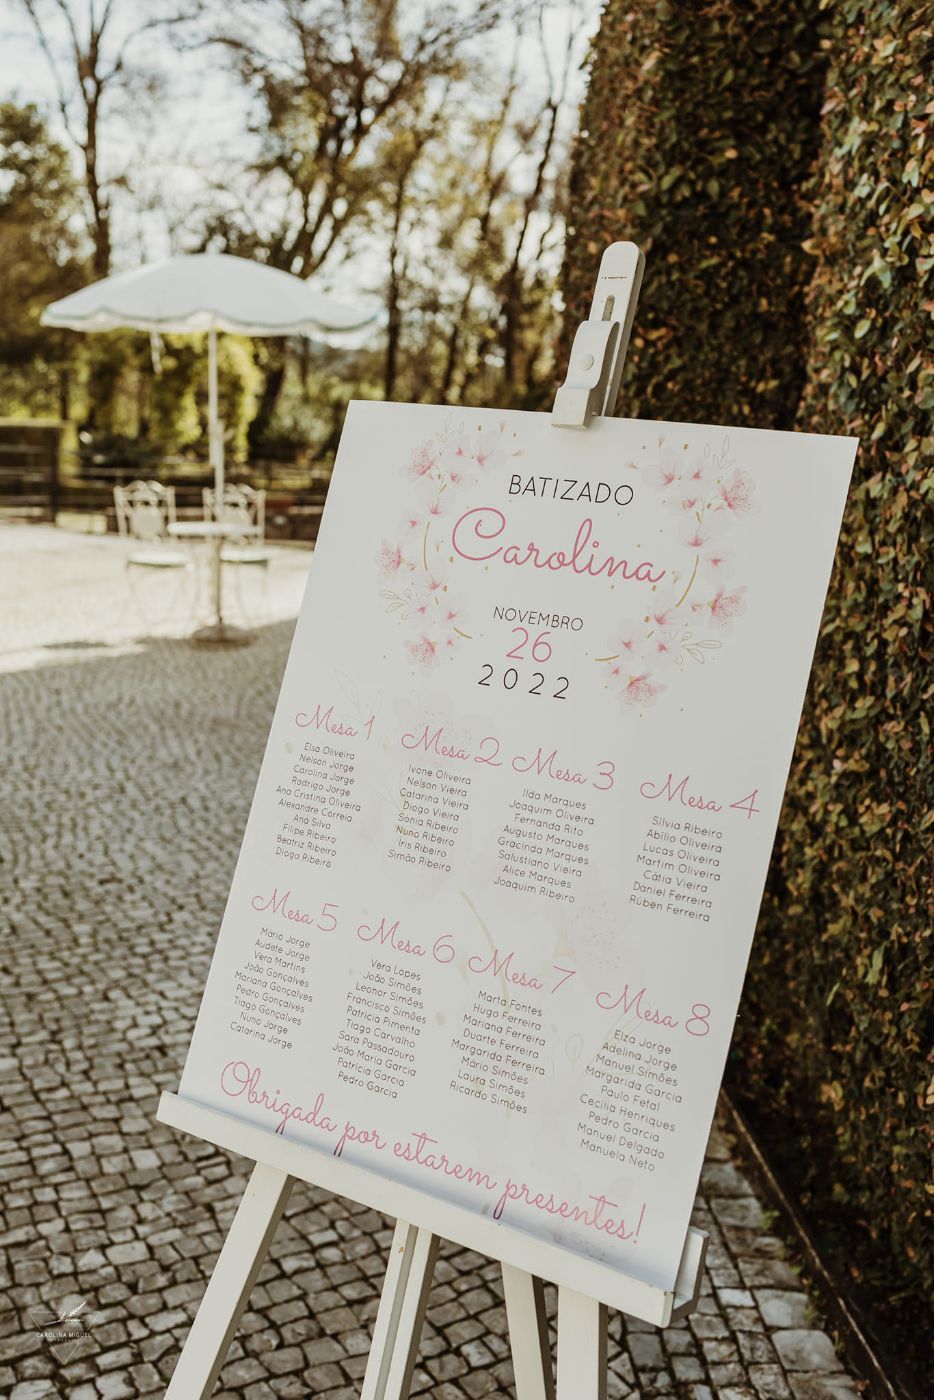 BATIZADO
Carolina
NOVEMBRO
26
2022
Mesa 1
Elsa Oliveira
Nelson Jorge
Carolina Jorge
Rodrigo Jorge
Ana Cristina Oliveira
Alexandre Correia
Ana Silva
Filipe Ribeiro
Beatriz Ribeiro
Diogo Ribeiro
Mesa 2
Ivone Oliveira
Nelson Vieira
Catarina Vieira
Diogo Vieira
Sónia Ribeiro
Nuno Ribeiro
Íris Ribeiro
Simão Ribeiro
Mesa 3
Ilda Marques
Joaquim Oliveira
Fernanda Rito
Augusto Marques
Gracinda Marques
Salustiano Vieira
Alice Marques
Joaquim Ribeiro
Mesa 4
Sílvia Ribeiro
Abílio Oliveira
Lucas Oliveira
Martim Oliveira
Cátia Vieira
Daniel Ferreira
Rúben Ferreira
Mesa 5
Mário Jorge
Audete Jorge
Vera Martins
João Gonçalves
Mariana Gonçalves
Pedro Gonçalves
Tiago Gonçalves
Nuno Jorge
Catarina Jorge
Mesa 6
Vera Lopes
João Simões
Leonor Simões
Francisco Simões
Patrícia Pimenta
Tiago Carvalho
Sara Passadouro
João Maria Garcia
Patrícia Garcia
Pedro Garcia
Mesa 7
Marta Fontes
Hugo Ferreira
Mariana Ferreira
Duarte Ferreira
Margarida Ferreira
Mário Simões
Laura Simões
Ricardo Simões
Mesa 8
Elza Jorge
Adelina Jorge
Manuel Simões
Margarida Garcia
Paulo Fetal
Cecília Henriques
Pedro Garcia
Manuel Delgado
Manuela Neto
Obrigada por estarem presentes!
CAROLINA MIGUEL